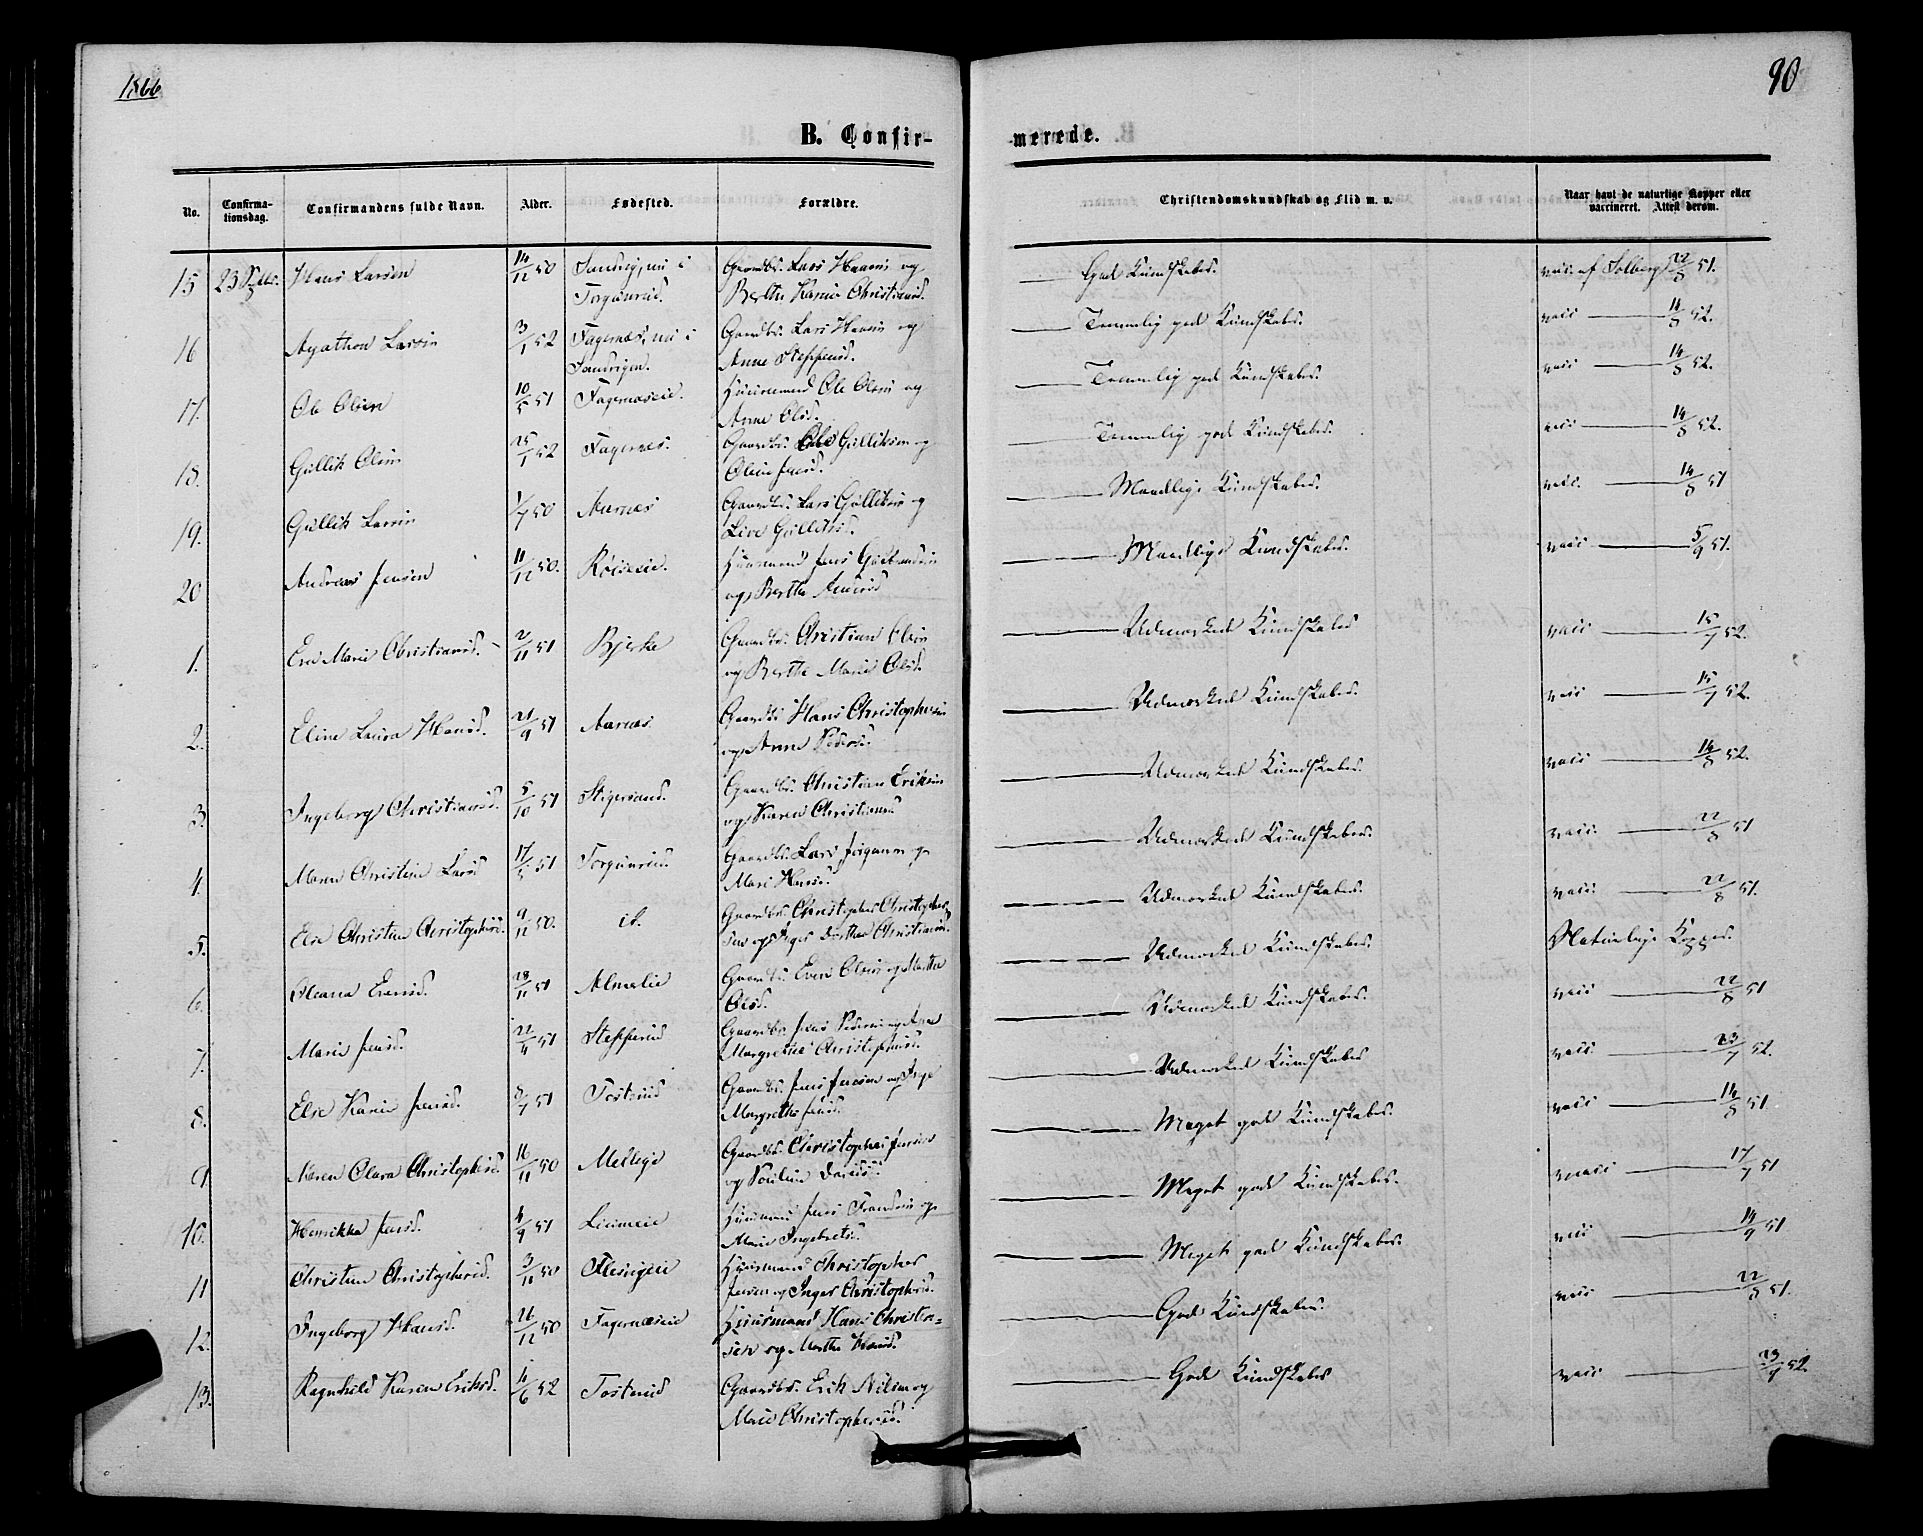 1866
90
B. Confir-
merede.
No.
Confirma-
tionsdag.
Confirmandens fulde Navn.
Alder.
Fødested.
Forældre.
Christendomskundskab og Flid m. v.
Naar havt de naturlige Kopper eller
vaccineret. Attest derom.
15 Hans Larsen 14/12 50 Gaardbr. Lars Hansen og
Berthe Karin Christiansd.
God Kundskaber. vacc. af Solberg 22/8 51.
16 Agathon Larsen 3/1 52 Fagernæs, nu i Gaardbr. Lars Hansen og
Anne Steffensd.
Temmelig god Kundskaber. vacc 14/8 52.
17. Ole Olsen 10/5 51 Fagernæseie. Huusmand Ole Olsen og
Anne Olsd.
Temmelig god Kundskaber. vacc 14/8 52.
18. Gullik Olsen 25/1 52 Fagernæs. Gaardbr. Ole Gulliksen og
Temmelig god Kundskaber. vacc 14/8 52.
19. Gullik Larsen 1/7 50 Aarnæs Gaardbr. Lars Gulliksen og
Live Gulliksd.
Maadelige Kundskaber. vacc. 14/8 51
20 Andreas Jensen 11/12 50. Røiseeie. Huusmand Jens Gulbrandsen
og Berthe
Maadelige Kundskaber. vacc 5/9 51.
1. Eva Marie Christiansd. 2/11 51 Bjerke Gaardbr. Christian Olsen
og Berthe Marie Olsd.
Udmærked Kundskaber vacc 15/7 52.
2. Eline Laura Hansd. 21/9 51 Aarnæs. Gaardbr Hans Christophersen
og Anne Pedersd.
Udmærked Kundskaber. vacc 15/7 52.
3. Ingeborg Christiansd. 5/10 51 Stigersand. Gaardbr. Christian Eriksen
og Karen Christiansd
Udmærked Kundskaber. vacc 14/8 52.
4. Maren Christine Larsd 17/5 51 Gaardbr. Lars Jørgensen og
Mari Hansd.
Udmærked Kundskaber. vacc. 22/8 51
5. Else Christine Christophersd. 9/11 50. id. Gaardbr. Christopher Christopher-
sen og Inger Dorthea Christiansd.
Udmærked Kundskaber. vacc. 22/8 51.
6. Oleana Evensd. 28/11 51 Almelie Gaardbr. Even Olsen og Marthe
Olsd.
Udmærked Kundskaber. Naturlige Kopper.
7. Marie Jensd. 22/4 51 Stefferud Gaardbr Jens Pedersen og
Margrethe Christophersd.
Udmærked Kundskaber. vacc 22/8 51
8. Else Karine Jensd. 8/7 51 Tosterud Gaardbr. Jens Jensen og Inge
Margrethe Jensd.
Udmærked Kundskaber vacc. 23/7 52.
9 Maren Clara Christophersd. 16/11 50 Mellegd Gaardbr. Christopher Jensen
og Pauline
Meget god Kundskaber. vacc 14/8 51.
10. Henrikka Jensd. 4/9 51 Huusmand Jens Frandsen og
Marie Ingebretsd.
Meget god Kundskaber. vacc 17/7 51
11 Christine Christophersd. 3/11 50 Huusmand Christopher
Jensen og Inger Christophersd.
Meget god Kundskaber. vacc 14/9 51
12. Ingeborg Hansd. 26/12 50 Fagernæseie Huusmand Hans Christen-
sen og Marthe Hansd.
God Kundskaber. vacc 22/8 51.
13. Ragnhild Karine Eriksd. 4/6 52 Tosterud Gaardbr. Erik Nilsen og
Mari Christophersd.
Gode Kundskaber vacc 23/9 52.